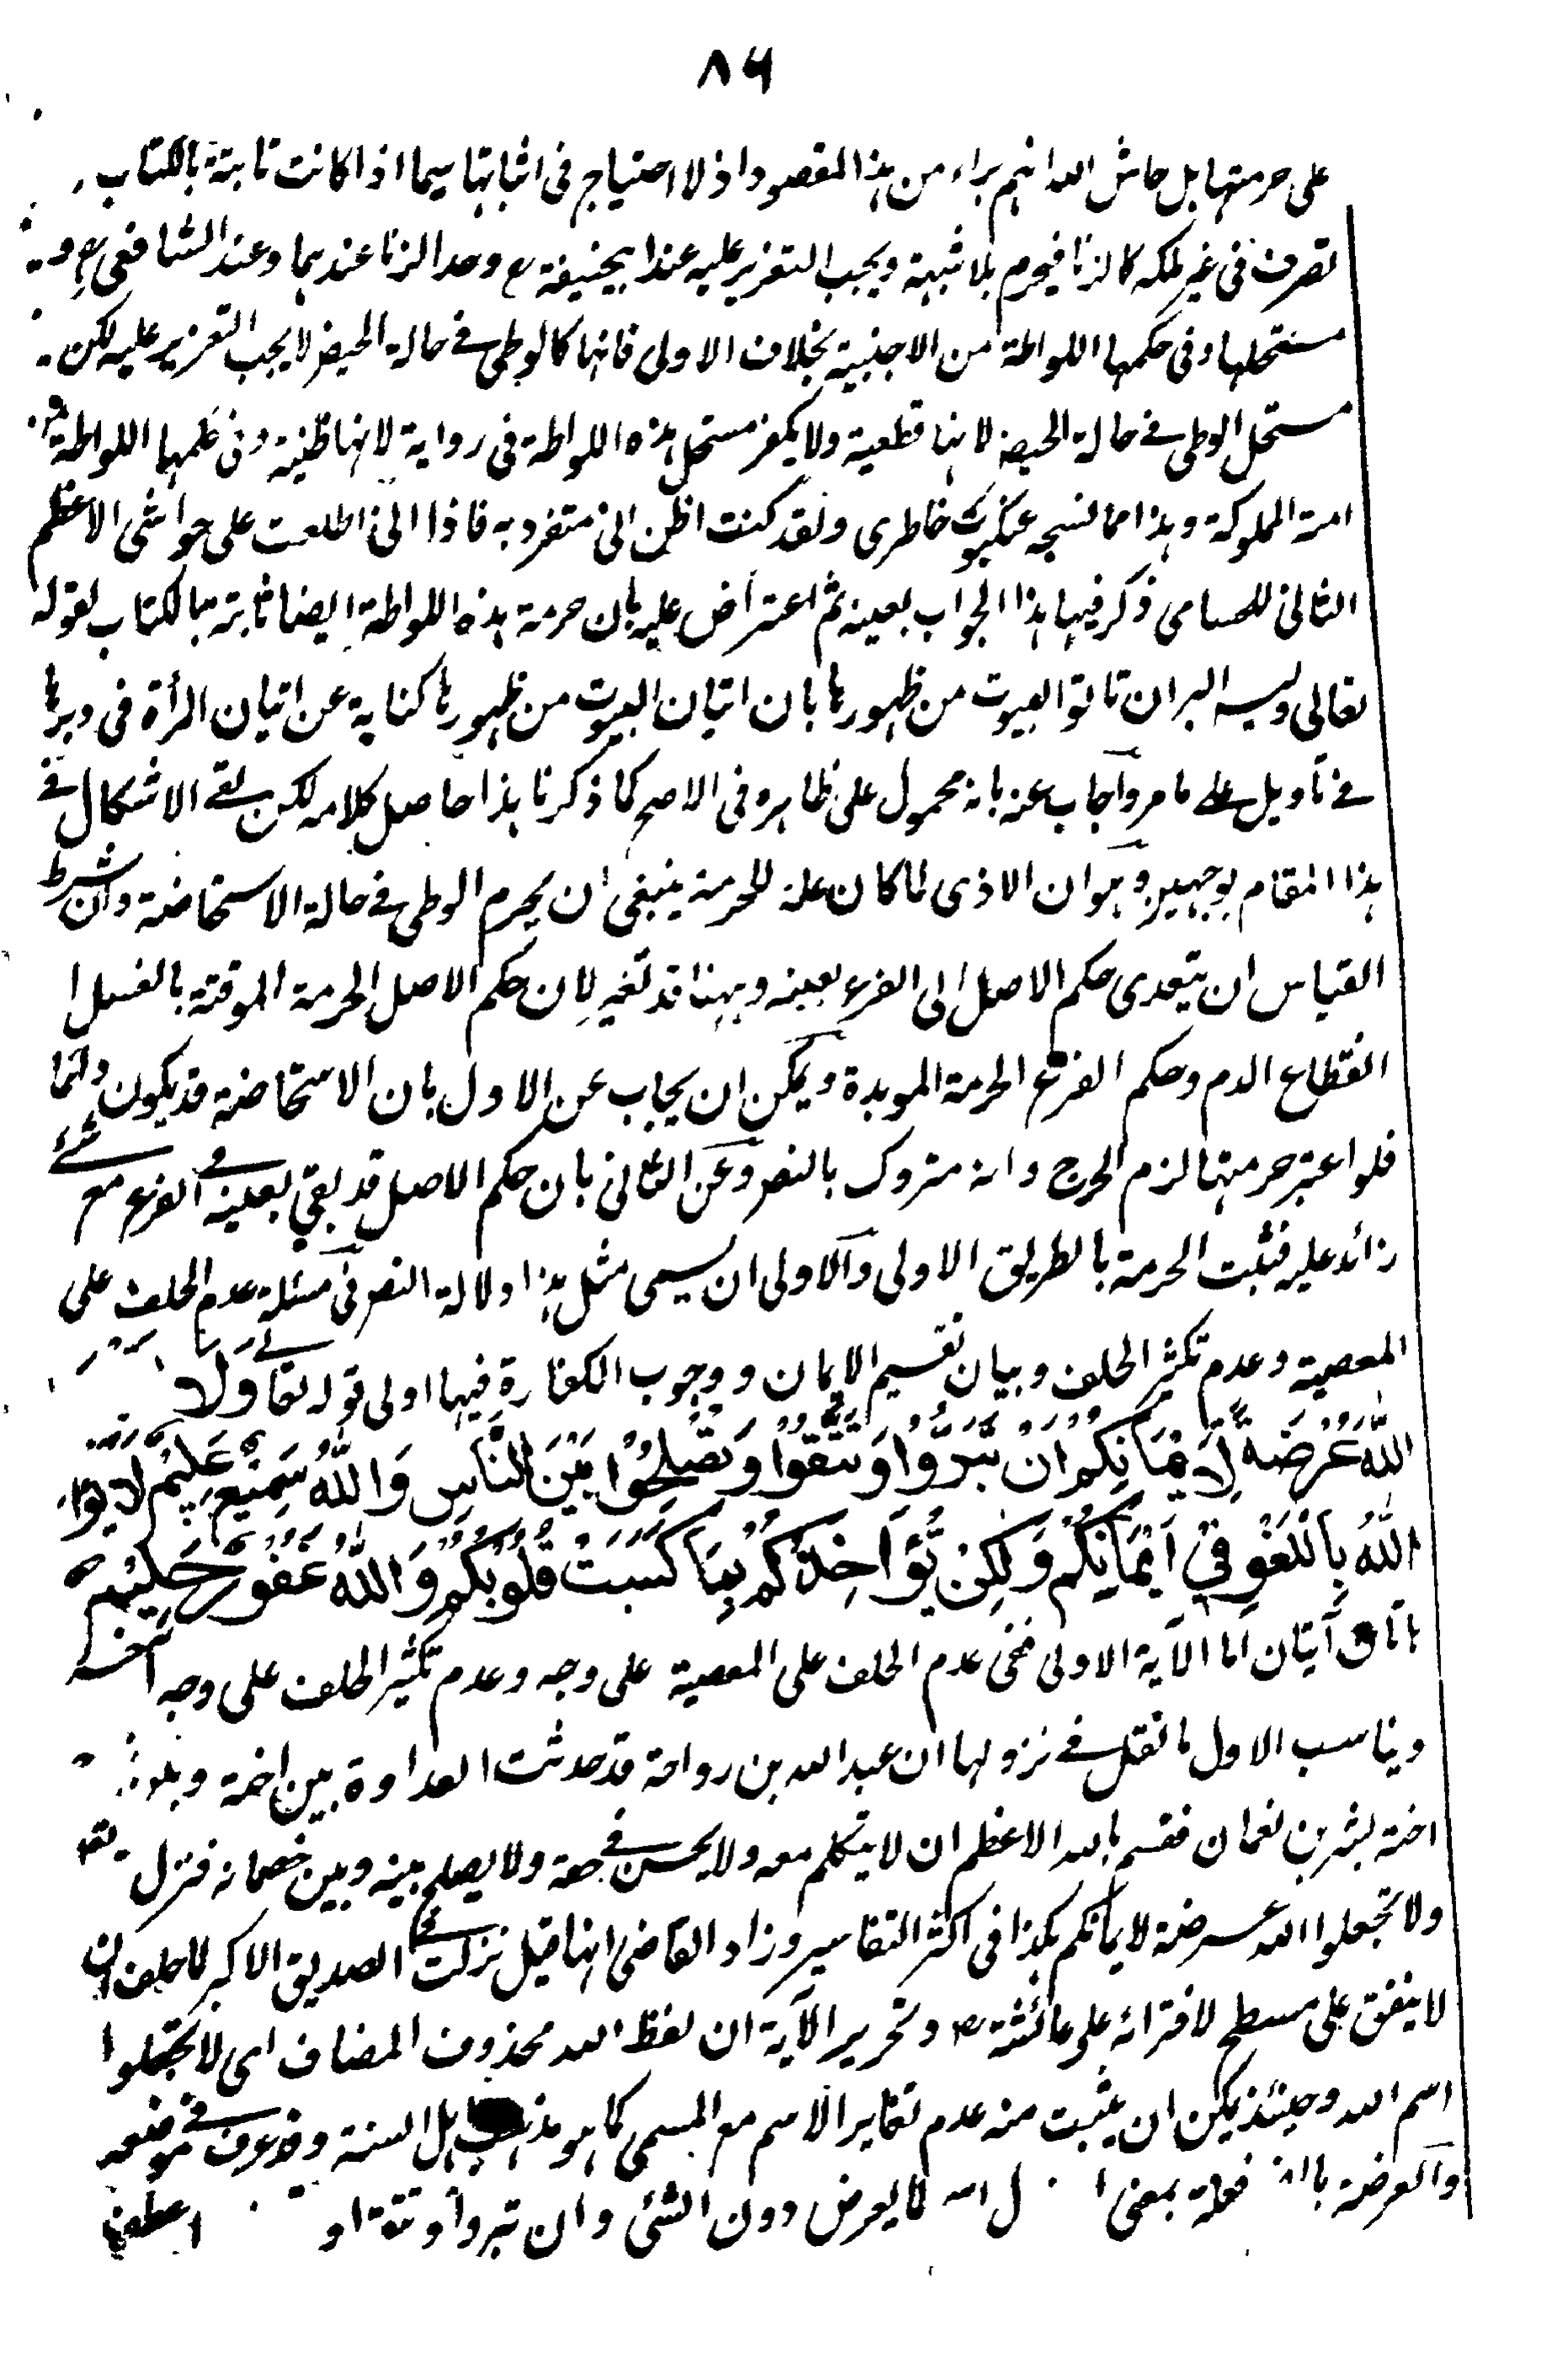 ٨٦
على حرمتها بل حاش لله انهم براء من هذا المقصود اذ لا احتياج فى اثباتها سيما اذا كانت ثابتة بالكتاب
تصرف فى غير ملكه كالزنا فيحرم بلا شبهة ويجب التعزير عليه عند ابيحنيفة رح وحد الزنا عندهما وعند الشافعى رح و
مستحلها وفى حكمها اللواطة من الاجنبية بخلاف الاولى فانها كالوطى فى حالة الحيض لا يجب التعزير عليه لكن
مستحل الوطى فى حالة الحيض لانها قطعية ولا يكفر مستحل هذه اللواطة فى رواية لانها ظنية وفى حكمها اللواطة من
امة المملوكة وهذا مما نسجه عنكبوت خاطرى ولقد كنت اظن انى متفرد به فاذا انى اطلعت على حواشى الاعظم
الثانى للحسامى ذكر فيها هذا الجواب بعينه ثم اعترض عليه بان حرمة هذه اللواطة ايضا ثابتة بالكتاب لقوله
تعالى وليس البر ان تاتوا البيوت من ظهورها بان اتيان البيوت من ظهورها كناية عن اتيان المرأة فى دبرها
فى تأويل على ما مر وأجاب عنه بانه محمول على ظاهره فى الاصح كما ذكرنا هذا حاصل كلامه لكن بقى الاشكال فى
هذا المقام بوجهين وهو ان الاذى لما كان علة للحرمة ينبغى ان يحرم الوطى فى حالة الاستحاضة وان شرط
القياس ان يتعدى حكم الاصل الى الفرع بعينه وههنا قد تغير لان حكم الاصل الحرمة الموقتة بالغسل ا
انقطاع الدم وحكم الفرع الحرمة الموبدة ويمكن ان يجاب عن الاول بان الاستحاضة قد يكون دائما
فلو اعتبر حرمتها لزم الحرج وانه متروك بالنص وعن الثانى بان حكم الاصل قد بقى بعينه فى الفرع مع شئ
زائد عليه فثبت الحرمة بالطريق الاولى والاولى ان يسمى مثل هذا دلالة النص فى مسئلة عدم الحلف على
المعصية وعدم تكثير الحلف وبيان تقسيم الايمان و وجوب الكفارة فيها اولى قوله تعالى وَلَا
اللّٰهَ عُرْضَةً لِّاَيْمَانِكُمْ اَنْ تَبَرُّوْا وَتَتَّقُوْا وَتُصْلِحُوْا بَيْنَ النَّاسِ وَاللّٰهُ سَمِيْعٌ عَلِيْمٌ لَا يُؤَا
اللّٰهُ بِاللَّغْوِ فِيْ اَيْمَانِكُمْ وَلٰكِنْ يُّؤَاخِذُكُمْ بِمَا كَسَبَتْ قُلُوْبُكُمْ وَاللّٰهُ غَفُوْرٌ حَلِيْمٌ
هاتان آيتان اما الآية الاولى ففى عدم الحلف على المعصية على وجه وعدم تكثير الحلف على وجه آخر
ويناسب الاول ما نقل فى نزولها ان عبد الله بن رواحة قد حدثت العداوة بين اخته و
اخته بشر بن نعمان فقسم بالله الاعظم ان لا يتكلم معه ولا يحسن فى حقه ولا يصلح بينه وبين خصمائه فنزل
ولا تجعلوا الله عرضة لايمانكم هكذا فى اكثر التفاسير وزاد القاضى انها قيل نزلت فى الصديق الاكبر لما حلف ان
لا ينفق على مسطح لافترائه على عائشة رض وتحرير الآية ان لفظ الله محذوف المضاف اى لا تجعلوا
اسم الله وحينئذ يمكن ان يثبت منه عدم تغاير الاسم مع المسمى كما هو مذهب اهل السنة وقد عرف فى موضعه
والعرضة فعلة بمعنى لما يعرض دون الشئ وان تبروا وتتقوا و